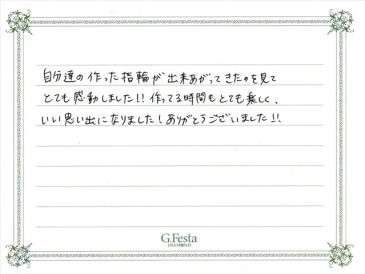 自分達の作った指輪が出来あがってきたのを見て
とても感動しました!!作ってる時間もとても楽しく、
いい思い出になりました!ありがとうございました!!
G.Festa
DIAMOND